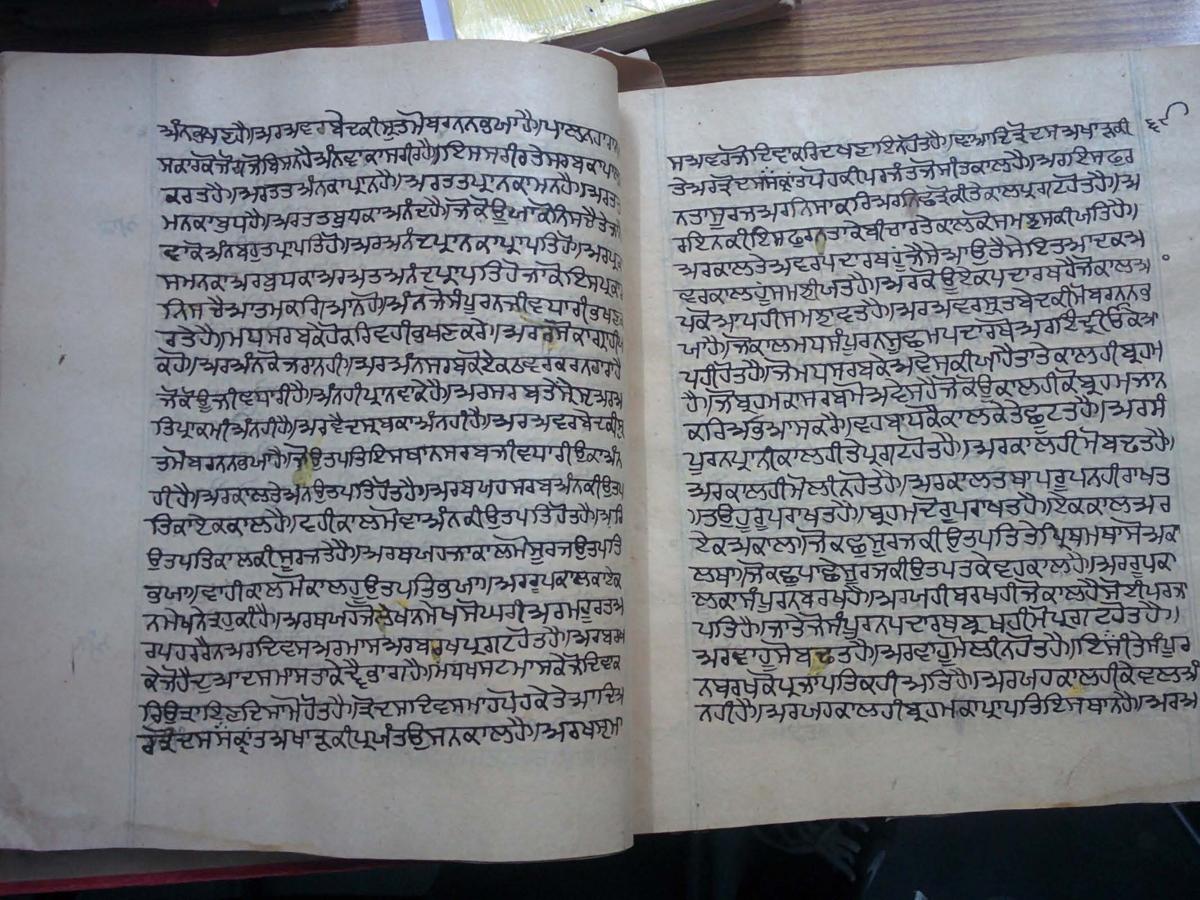 ਅੰਨਭਖਣਹੈ।ਅਰਅਵਰਬੇਦਕੀਸ੍ਰੁਤਮੋਬਰਨਨਭਯਾਹੈ।ਪਾਲਨਹਾਰਾ
ਸਕਾਰਕੋਜੋਬਜੋਬਿਸਨਹੈਅੰਨਵਾਕਾਸਰੀਰਹੈ।ਇਸਸਰੀਰਤੇਸਰਬਕਾਪਾਲ
ਕਰਤਹੈ।ਅਰਤਤਅੰਨਕਾਪ੍ਰਾਨਹੈ।ਅਰਤਤਪ੍ਰਾਨਕਾਮਨਹੈ।ਅਰਤਤ
ਮਨਕਾਬੁਧਹੈ।ਅਰਤਤਬੁਧਕਾਅਨੰਦਹੈ।ਜੋਕੋਊਯਾਕੋਨਿਸਚੈਤੇਜਾਨੈ
ਵਾਕੋਅੰਨਬਹੁਤਪ੍ਰਾਪਤਿਹੈ।ਅਰਅਨੰਦਪ੍ਰਾਨਕਾਪ੍ਰਾਪਤਿਹੈ।ਅਰਪ੍ਰਾਨ
ਸਮਨਕਾਅਰਬੁਧਕਾਅਰਅਤਅਨੰਦਪ੍ਰਾਪਤਿਹੋਜਾਕੋਇਸਪ੍ਰਕਾਰ
ਨਿਸਚੈਆਤਮਕਰਿ।ਆਨਹੈ।ਅੰਨਜੋਸੰਪੂਰਨਜੀਵਧਾਰੀਭਖਣ
ਰਤੇਹੈ।ਮਧਸਰਬਕੇਹੋਕਰਿਵਹੀਭਖਣਕਰੇ।ਅਰਜੋਕਾਗ੍ਰਹੀਪ
ਕਹੈ।ਅਰਅੰਨਕੋਜਰਾਨਹੀ।ਅਰਅੰਨਸਰਬਕੋਏਕਠਵਰਕਰਨਹਾਰਾਹੈ
ਜੋਕੋਊਜੀਵਧਾਰੀਹੈ।ਅੰਨਹੀਪ੍ਰਾਨਵਕੋਹੈ।ਅਰਸਰਬਤੇਸ੍ਰੇਸਟਅਰਅ
ਤਿਪ੍ਰਾਕਮੀਅੰਨਹੀਹੈ।ਅਰਵੈਦਸਬਕਾਅੰਨਹੀਹੈ।ਅਰਅਵਰਬੇਦਕੀਸ੍ਰੁ
ਤਮੋਬਰਨਨਭਯਾਹੈ।ਜੋਉਤਪਤਿਇਸਥਾਨਸਰਬਜੀਵਧਾਰੀਓਕਾਅੰਨ
ਹੀਹੈ।ਅਰਕਾਲਤੇਅੰਨਉਤਪਤਿਹੋਤਹੈ।ਅਰਬਯਹਸਰਬਅੰਨਕੀਉਤਪ
ਤਿਕਾਏਕਕਾਲਹੈ।ਵਹੀਕਾਲਮੋਵਾਅੰਨਕੀਉਤਪਤਿਹੋਤਹੈ।ਅਰਿ
ਉਤਪਤਿਕਾਲਕੀਸੂਰਜਤੇਹੈ।ਅਰਬਯਹਜਾਕਾਲਮੋਸੂਰਜਉਤਪਤਿ
ਭਯਾ।ਵਾਹੀਕਾਲਮੋਕਾਲਹੂਉਤਪਤਿਭਯਾ।ਅਰਰੂਪਕਾਲਕਾਏਕ
ਨਮੇਖਨੇਤ੍ਰਹੁਕੀਹੈ।ਅਰਬਯਹਜੋਲੇਖਨਮੇਖਸੋਘਰੀਅਰਮਹੂਰਤਅ
ਰਪਹਰਰੈਨਅਰਦਿਵਸਅਰਮਾਸਅਰਬਰਖਪ੍ਰਗਟਹੋਤਹੈ।ਅਰਬਰਖ
ਕੇਜੋਹੈਦੁਆਦਸਮਾਸਤਾਕੇਦ੍ਵੈਭਾਗਹੈ।ਮਧਖਸਟਮਾਸਕੇਜੋਦਿਵਕ
ਰਿਉਤ੍ਰਾਇਣਦਿਸਾਮੋਹੋਤਹੈ।ਤ੍ਰੋਦਸਾਦਿਵਸਮਾਹਪੋਹਕੇਤੇਆਦਿਅ
ਰਤ੍ਰੋਦਸਸੰਕ੍ਰਾਂਤਅਖਾੜਕੀਪ੍ਰਯੰਤਉਸਨਕਾਲਹੈ।ਅਰਖਸਟਮਾ
੬੮
ਸਅਵਰਜੋਦਿਵਾਕਰਿਦਖਣਾਇਨਹੋਤਹੈ।ਵਆਦਿਤ੍ਰੋਦਸਅਖਾੜਕੀ
ਤੇਅਰਤ੍ਰੋਦਸਸੰਕ੍ਰਾਂਤਪੋਹਕੀਪਰਜੰਤਜੋਸੀਤਕਾਲਹੈ।ਅਰਇਸਫਰ
ਨਤਾਸੂਰਜਅਰਨਿਸਾਕਰਿਅਰਨਿਛਤ੍ਰੋਕੀਤੇਕਾਲਪ੍ਰਗਟਹੋਤਹੈ।ਅ
ਰਇਨਕੀਇਸਫਰਨਤਾਕੇਬੀਚਾਰਤੇਕਾਲਕੋਸਮਝਸਕੀਯਤਿਹੈ।
ਅਰਕਾਲਤੇਅਵਰਪਦਾਰਥਹੂੰਜੈਸੇਆਉਤੈਸੇਇਤਆਦਕਅ
ਵਰਕਾਲਹੂੰਸਮਝੀਯਤਹੈ।ਅਰਕੋਊਏਕਪਦਾਰਥਹੈਜੋਕਾਲਅ
ਪਕੋਆਪਹੀਸਮਝਾਵਤਹੈ।ਅਰਅਵਰਸ੍ਰੁਤਬੇਦਕੀਮੋਬਰਨਨਭ
ਯਾਹੈ।ਜੋਕਾਲਮਧਸੰਪੂਰਨਸੂਛਮਪਦਾਰਥੋਅਰਇੰਦ੍ਰੀਓਕੇਅ
ਪਹੀਹੋਤਹੈ।ਜੋਮਧਸਰਬਕੇਅਵੇਸਕੀਯਾਹੈਤਾਤੇਕਾਲਹੀਬ੍ਰਹਮ
ਹੈ।ਜੋਬ੍ਰਹਮਕਾਸਰਬਮੋਅਵੇਸਹੈਜੋਕੋਊਕਾਲਹੀਕੋਬ੍ਰਹਮਜਾਨ
ਕਰਿਅਭਿਆਸਕਰੈ।ਵਹਬਾਧਕੈਕਾਲਕਤੇਛੂਟਤਹੈ।ਅਰਸੰ
ਪੂਰਨਪ੍ਰਾਨੀਕਾਲਹੀਤੇਪ੍ਰਗਟਹੋਤਹੈ।ਅਰਕਾਲਹੀਮੋਬਢਤਹੈ।
ਅਰਕਾਲਹੀਮੋਲੀਨਹੋਤੇਹੈ।ਅਰਕਾਲਤਥਾਪਰੂਪਨਹੀਰਾਖਤ
।ਤਊਹੂਰੂਪਰਾਖਤਹੈ।ਬ੍ਰਹਮਦੋਰੂਪਰਾਖਤਹੈ।ਏਕਕਾਲਅਰ
ਏਕਅਕਾਲ।ਜੋਕਛੁਸੂਰਜਕੀਉਤਪਤਿਤੇਪ੍ਰਿਥਮਥਾਸੋਅਕਾ
ਲਥਾ।ਜੋਕਛੁਪਾਛੇਸੂਰਜਕੀਉਤਪਤਕੇਵਹਕਾਲਹੈ।ਅਰਰੂਪਕਾ
ਲਕਾਸੰਪੂਰਨਬਰਖਹੈ।ਅਰਯਹੀਬਰਖਹੀਜੋਕਾਲਹੈਸੋਈਪਰਜਾ
ਪਤਿਹੈ।ਜਾਤੇਜੋਸੰਪੂਰਨਪਦਾਰਥਬ੍ਰਖਹੀਮੋਪ੍ਰਗਟਹੋਤਹੈ।
ਅਰਵਾਹੂਮੋਬਢਤਹੈ।ਅਰਵਾਹੂਮੋਲੀਨਹੋਤਹੈ।ਇਸੀਤੇਸੰਪੂਰ
ਨਬਰਖਕੋਪ੍ਰਜਾਪਤਿਕਹੀਅਤਿਹੈ।ਅਰਯਹਕਾਲਹੀਕੇਵਲਅੰ
ਨਹੀਹੈ।ਅਰਯਹਕਾਲਹੀਬ੍ਰਹਮਕਾਪ੍ਰਾਪਤਿਇਸਥਾਨਹੈ।ਅਰਅ